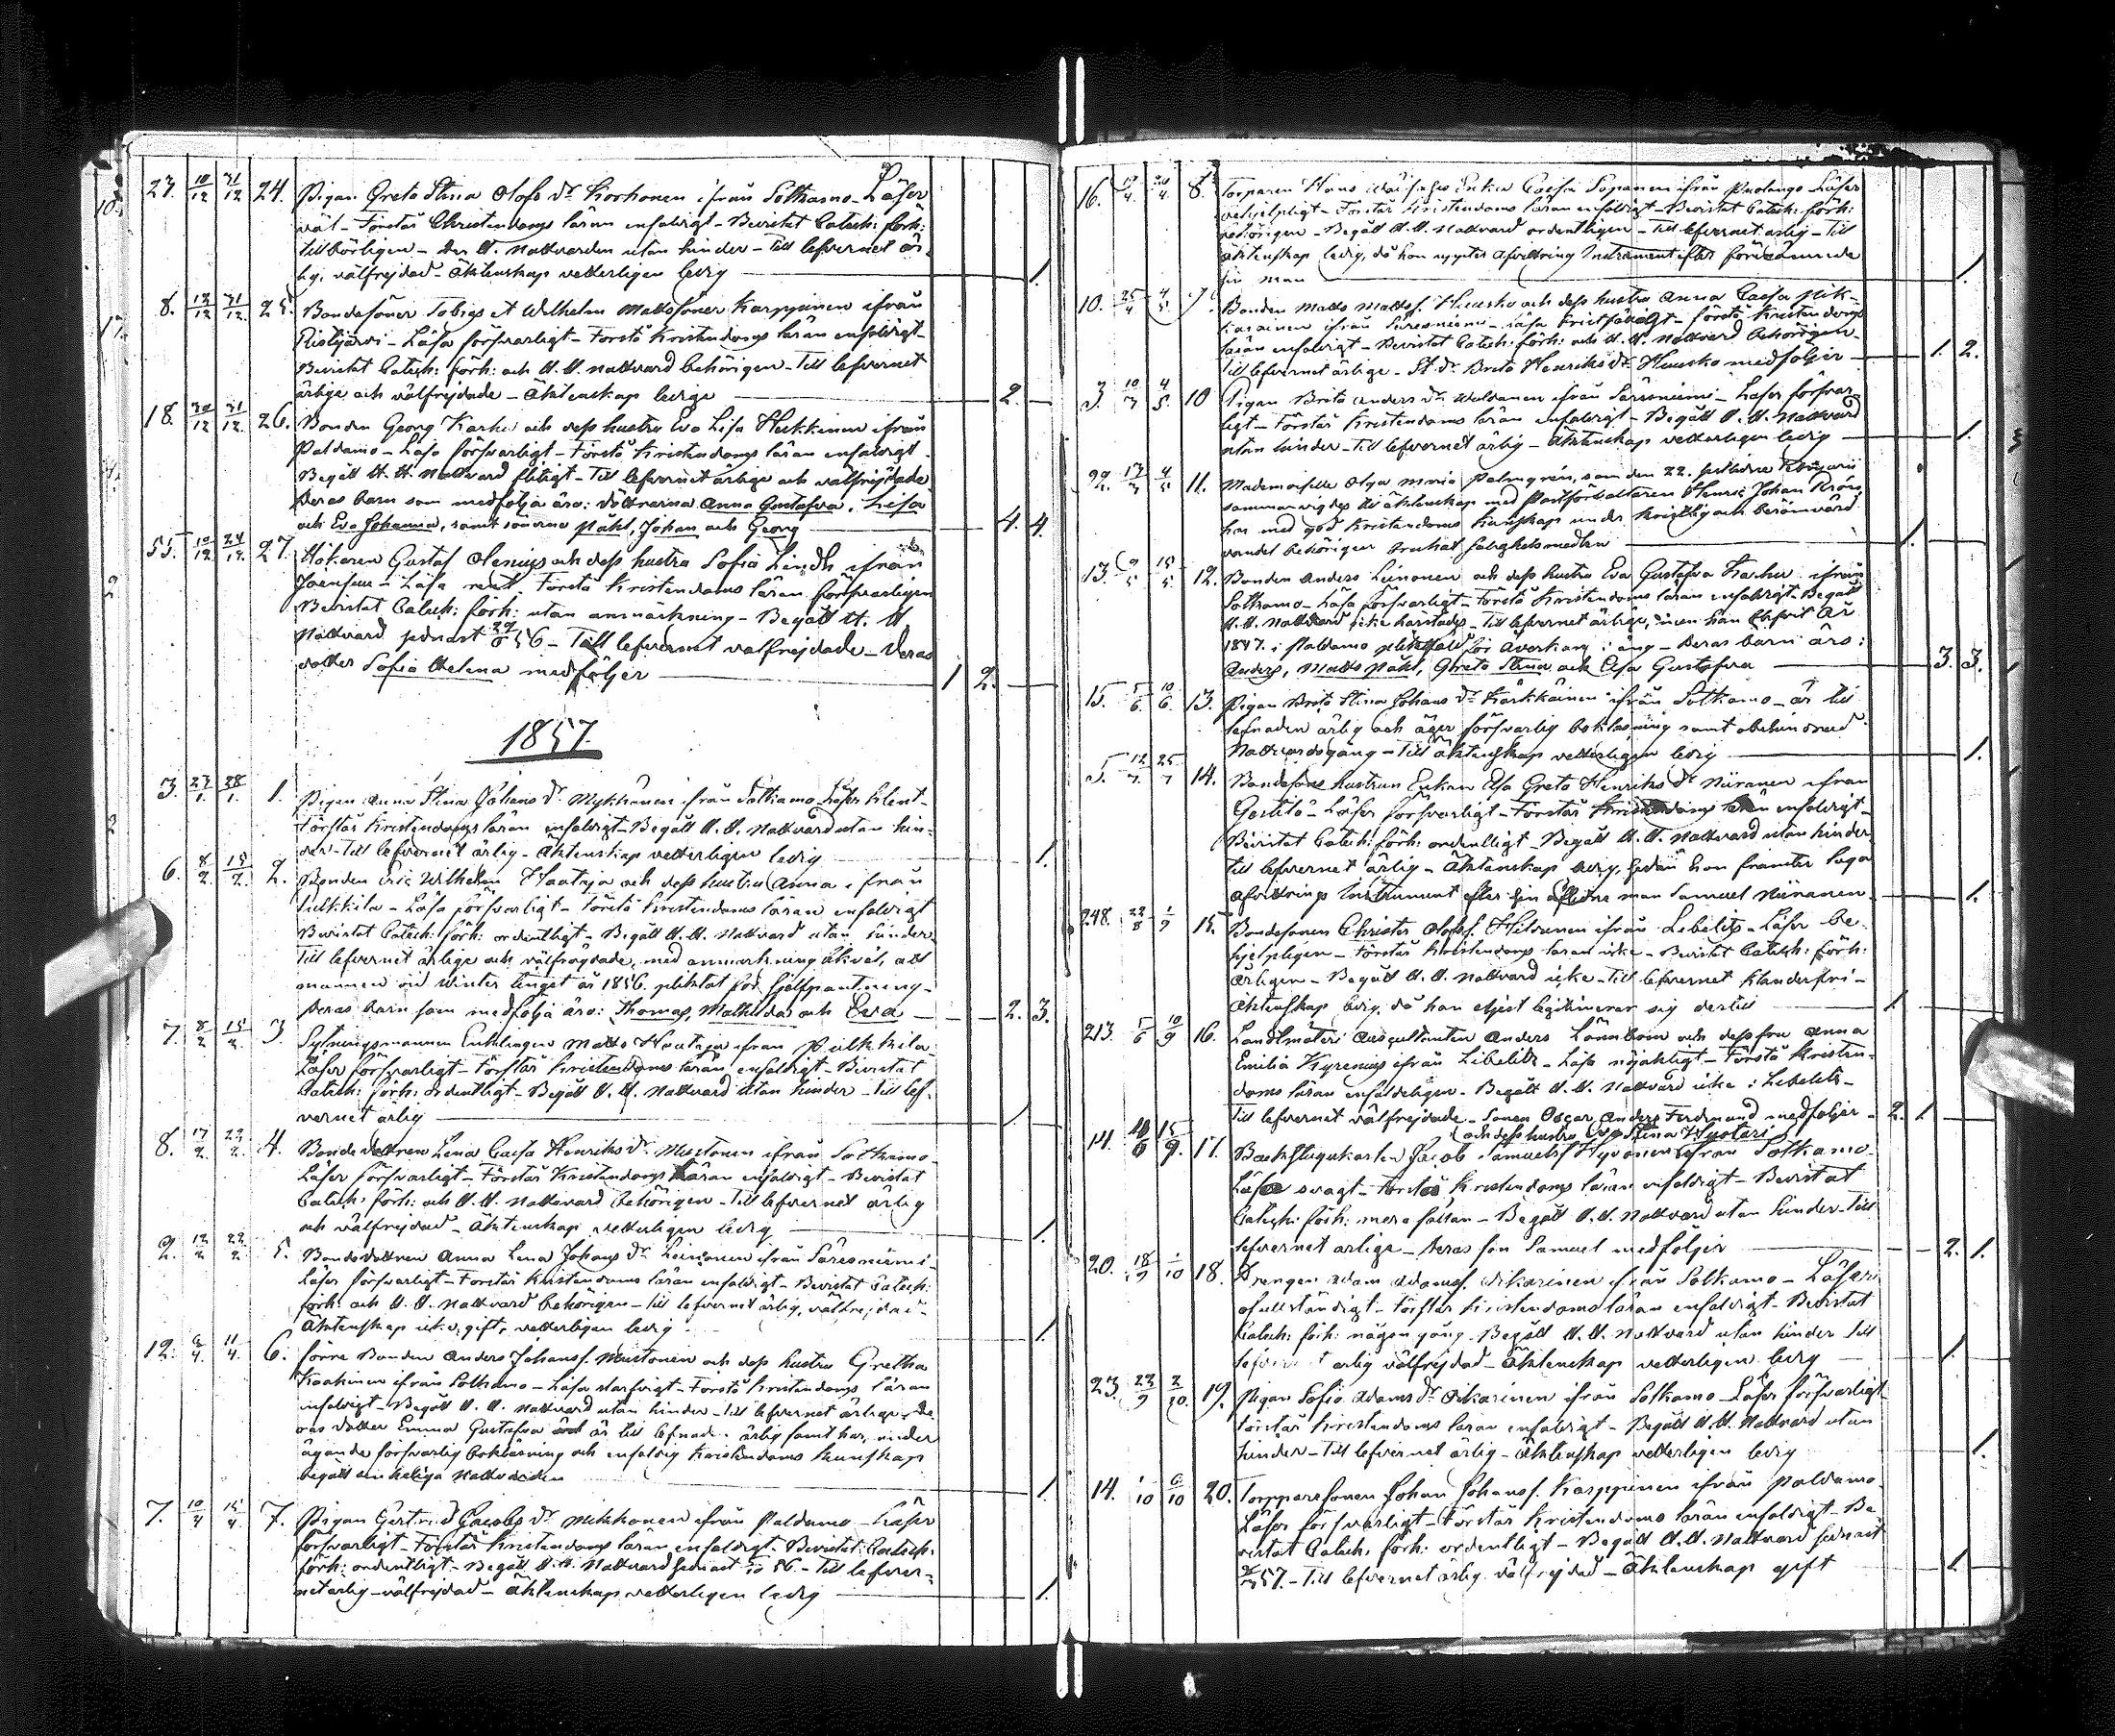 27. 10/12 31/12 24. Pigan Greta Stina Olofs dr Korhonen ifrån Sotkamo - Läser
väl - Förstår Christendoms läran enfaldigt - Bevistat Catech: förh:
tillbörligen - Den H. Nattvarden utan hinder - Till lefvernet är-
lig, välfrejdad - Äktenskap vetterligen ledig 1.
8. 12/12 31/12 25. Bondesöner Tobias et Wilhelm Mattssöner Karppinen ifrån
Ristijärvi - Läsa försvarligt - Förstå Kristendoms läran enfaldigt -
Bevistat Catech: förh: och H. H. Nattvard behörigen - Till lefvernet
ärlige och välfrejdade - Äktenskap ledige 2.
18. 30/12 31/12 26. Bonden Georg Karhu och dess hustru Eva Lisa Heikkinen ifrån
Paldamo - Läsa försvarligt - Förstå Kristendoms läran enfaldigt
Begått H. H. Nattvard flitigt - Till lefvernet ärlige och välfrejdade
Deras barn som medfölja äro: döttrarna Anna Gustafva, Lisa
och Eva Johanna, samt sönerna Påhl, Johan och Georg 4. 4.
55. 10/12 24/12 27. Hökaren Gustaf Alenius och dess hustru Sofia Lindh ifrån
Joensuu - Läsa rent. Förstå Kristendoms läran försvarligen
Bevistat Catech: förh: utan anmärkning - Begått H. H.
Nattvard sednast 56 - Till lefvernet välfrejdade - Deras
dotter Sofia Helena medföljer 1 2.
1857.
3. 27/1. 28/1. 1. Pigan Anna Stina Johans dr Mykkänen ifrån Sotkamo Läser
Förstår Kristendoms läran enfaldigt - Begått H. H. Nattvard utan hin-
der - Till lefvernet ärlig - Äktenskap vetterligen ledig 1.
6. 8/2 15/2. 2. Bonden Eric Wilhelm Haataja och dess hustru Anna ifrån
Pulkkila - Läsa försvarligt - Förstå Kristendoms läran enfaldigt
Bevistat Catech: förh: ordentligt - Begått H. H. Nattvard utan hinder
Till lefvernet ärlige och välfrägdade, med anmärkning likväl, att
mannen vid Winter tinget år 1856 pliktat för sjelfpantning -
Deras barn som medfölja äro: Thomas, Mathilda och Eva 2. 3.
7. 8/2 15/2. 3. Sytningsmannen Enklingen Matts Haataja ifrån Pulkkila
Läser försvarligt - Förstår Kristendoms läran enfaldigt - Bevistat
Catech: förh: ordentligt - Begått H. H. Nattvard utan hinder - Till lef-
vernet ärlig 1.
8. 17/2. 22/2. 4. Bondedottren Lena Caisa Henriks dr Mustonen ifrån Sotkamo
Läser försvarligt - Förstår Kristendoms läran enfaldigt - Bevistat
Catech: förh: och H. H. Nattvard behörigen - Till lefvernet ärlig
och välfrejdad - Äktenskap vetterligen ledig 1.
9. 12/2 22/2. 5. Bondedottren Anna Lena Johans dr Leinonen ifrån Säresniemi -
Läser försvarligt - Förstår Kristendoms läran enfaldigt - Bevistat Catech:
förh: och H. H. Nattvard behörigen - Till lefvernet ärlig, välfrejdad -
Äktenskap icke gift, vetterligen ledig 1.
12. 6/4. 11/4. 6. Förre Bonden Anders Johanss. Mustonen och dess hustru Gretha
Kaakinen ifrån Sotkamo - Läsa Förstå Kristendoms läran
enfaldigt - Begått H. H. Nattvard utan hinder - Till lefvernet ärlige - De-
ras dotter Emma Gustafva är till lefnaden ärlig samt har, under
ägande försvarlig bokläsning och enfaldig Kristendoms kunskap
begått den heliga Nattvarden 1.
7. 10/4 15/4. 7. Pigan Gertrud Jacobs dr Mikkonen ifrån Paldamo - Läser
försvarligt - Förstår Kristendoms läran enfaldigt. Bevistat Catech:
förh: ordentligt - Begått H. H. Nattvard sednast 56. - Till lefver-
net ärlig - välfrejdad - Äktenskap vetterligen ledig 1.
16. 4. 4. 8. Torparen Hans Enka Caisa ifrån Puolango - Läser
behjelpligt - Förstår Kristendoms läran enfaldigt - Bevistat Catech: förh:
behörigen - Begått H. H. Nattvard ordentligen - Till lefvernet ärlig - Till
äktenskap ledig, då hon uppter Afvittrings Instrument efter förenämnde
sin man 1.
10. 25/4 4/5 9. Bonden Matts Mattss. Huusko och dess hustru Anna Caisa Mik-
ifrån Säresniemi - Läsa - Förstå Kristendoms
läran enfaldigt - Bevistat Catech: förh: och H. H. Nattvard behörigen -
Till lefvernet ärlige - St. dr Brita Henriks dr Huusko medföljer 1. 2.
3. 10/3 4/5. 10 Pigan Brita Anders dr Väldanen ifrån Säresniemi - Läser försvar-
ligt - Förstår Kristendoms läran enfaldigt - Begått H. H. Nattvard
utan hinder - Till lefvernet ärlig - Äktenskap vetterligen ledig 1.
22. 17/3 4/5 11. Mademoiselle Olga Maria Palmgren, som den 22. sistledne Februarii
sammanvigdes till äktenskap med Postförvaltaren Henric Johan
har med god Kristendoms kunskap under Kristlig och berömvärd
vandel behörigen brukat salighetsmedlen 1.
13. 9/5 15/5. 12. Bonden Anders Leinonen och dess hustru Eva Gustafva Karhu ifrån
Sotkamo - Läsa försvarligt - Förstå Kristendoms läran enfaldigt. Begått
H. H. Nattvard icke härstädes - Till lefvernet ärlige, men han blifvit År
1847 i Paldamo pliktfäld för åverkan i äng - Deras barn äro:
Anders, Matts Påhl, Greta Stina och Elsa Gustafva 3. 3.
15. 5/6. 10/6. 13. Pigan Brita Stina Johans dr Kärkkäinen ifrån Sotkamo - är till
lefnaden ärlig och äger försvarlig bokläsning samt obehindrad
Nattvardsgång - Till äktenskap vetterligen ledig 1.
5. 12/7. 25/7 14. Bondesons hustrun Enkan Elsa Greta Henriks dr Niiranen ifrån
Gestilä - Läser försvarligt - Förstår Kristendoms läran enfaldigt -
Bevistat Catech: förh: ordentligt - Begått H. H. Nattvard utan hinder
Till lefvernet ärlig - Äktenskap ledig, sedan hon framter laga
Afvittrings Instrument efter sin aflidne man Samuel Niiranen 1.
248. 22/8 1/9 15. Bondesonen Christer Olofss. Hiltunen ifrån Libelits - Läser be-
hjelpligen - Förstår Kristendoms läran icke - Bevistat Catech: förh:
årligen - Begått H. H. Nattvard icke - Till lefvernet klanderfri -
Äktenskap ledig, då han edligt legitimerar sig dertill 1.
213. 5/6 10/9 16. Landtmäteri Auscultanten Anders Lönnbom och dess fru Anna
Emilia Kyrenius ifrån Libelits - Läsa nöjaktigt - Förstå Kristen-
doms läran enfaldeligen - Begått H. H. Nattvard icke i Libelits -
Till lefvernet välfrejdade - Sonen Oscar Anders Ferdinand medföljer 2. 1
och dess hustru Eva Stina Mustari
14. 9 15/9. 17. Backstugukarlen Jacob Samuelss Hyvönen ifrån Sotkamo
Läsa svagt - Förstå Kristendoms läran enfaldigt - Bevistat
Catech: förh: mera sällan - Begått H. H. Nattvard utan hinder - Till
lefvernet ärlige - Deras son Samuel medföljer 2. 1.
20. 18/9 1/10 18. Drengen Adam Adamss. Oikarinen ifrån Sotkamo - Läser
ofullständigt - Förstår Kristendoms läran enfaldigt - Bevistat
Catech: förh: någon gång - Begått H. H. Nattvard utan hinder till
lefvernet ärlig välfrejdad - Äktenskap vetterligen ledig 1.
23. 22/9 2/10. 19. Pigan Sofia Adams dr Oikarinen ifrån Sotkamo - Läser försvarligt
Förstår Kristendoms läran enfaldigt - Begått H. H. Nattvard utan
hinder - Till lefvernet ärlig - Äktenskap vetterligen ledig 1.
14. 1/10 6/10 20. Torparesonen Johan Johanss. Karppinen ifrån Paldamo
Läser försvarligt - Förstår Kristendoms läran enfaldigt - Be-
vistat Catech. förh: ordentligt - Begått H. H. Nattvard sednast
57. - Till lefvernet ärlig välfrejdad - Äktenskap gift 1.